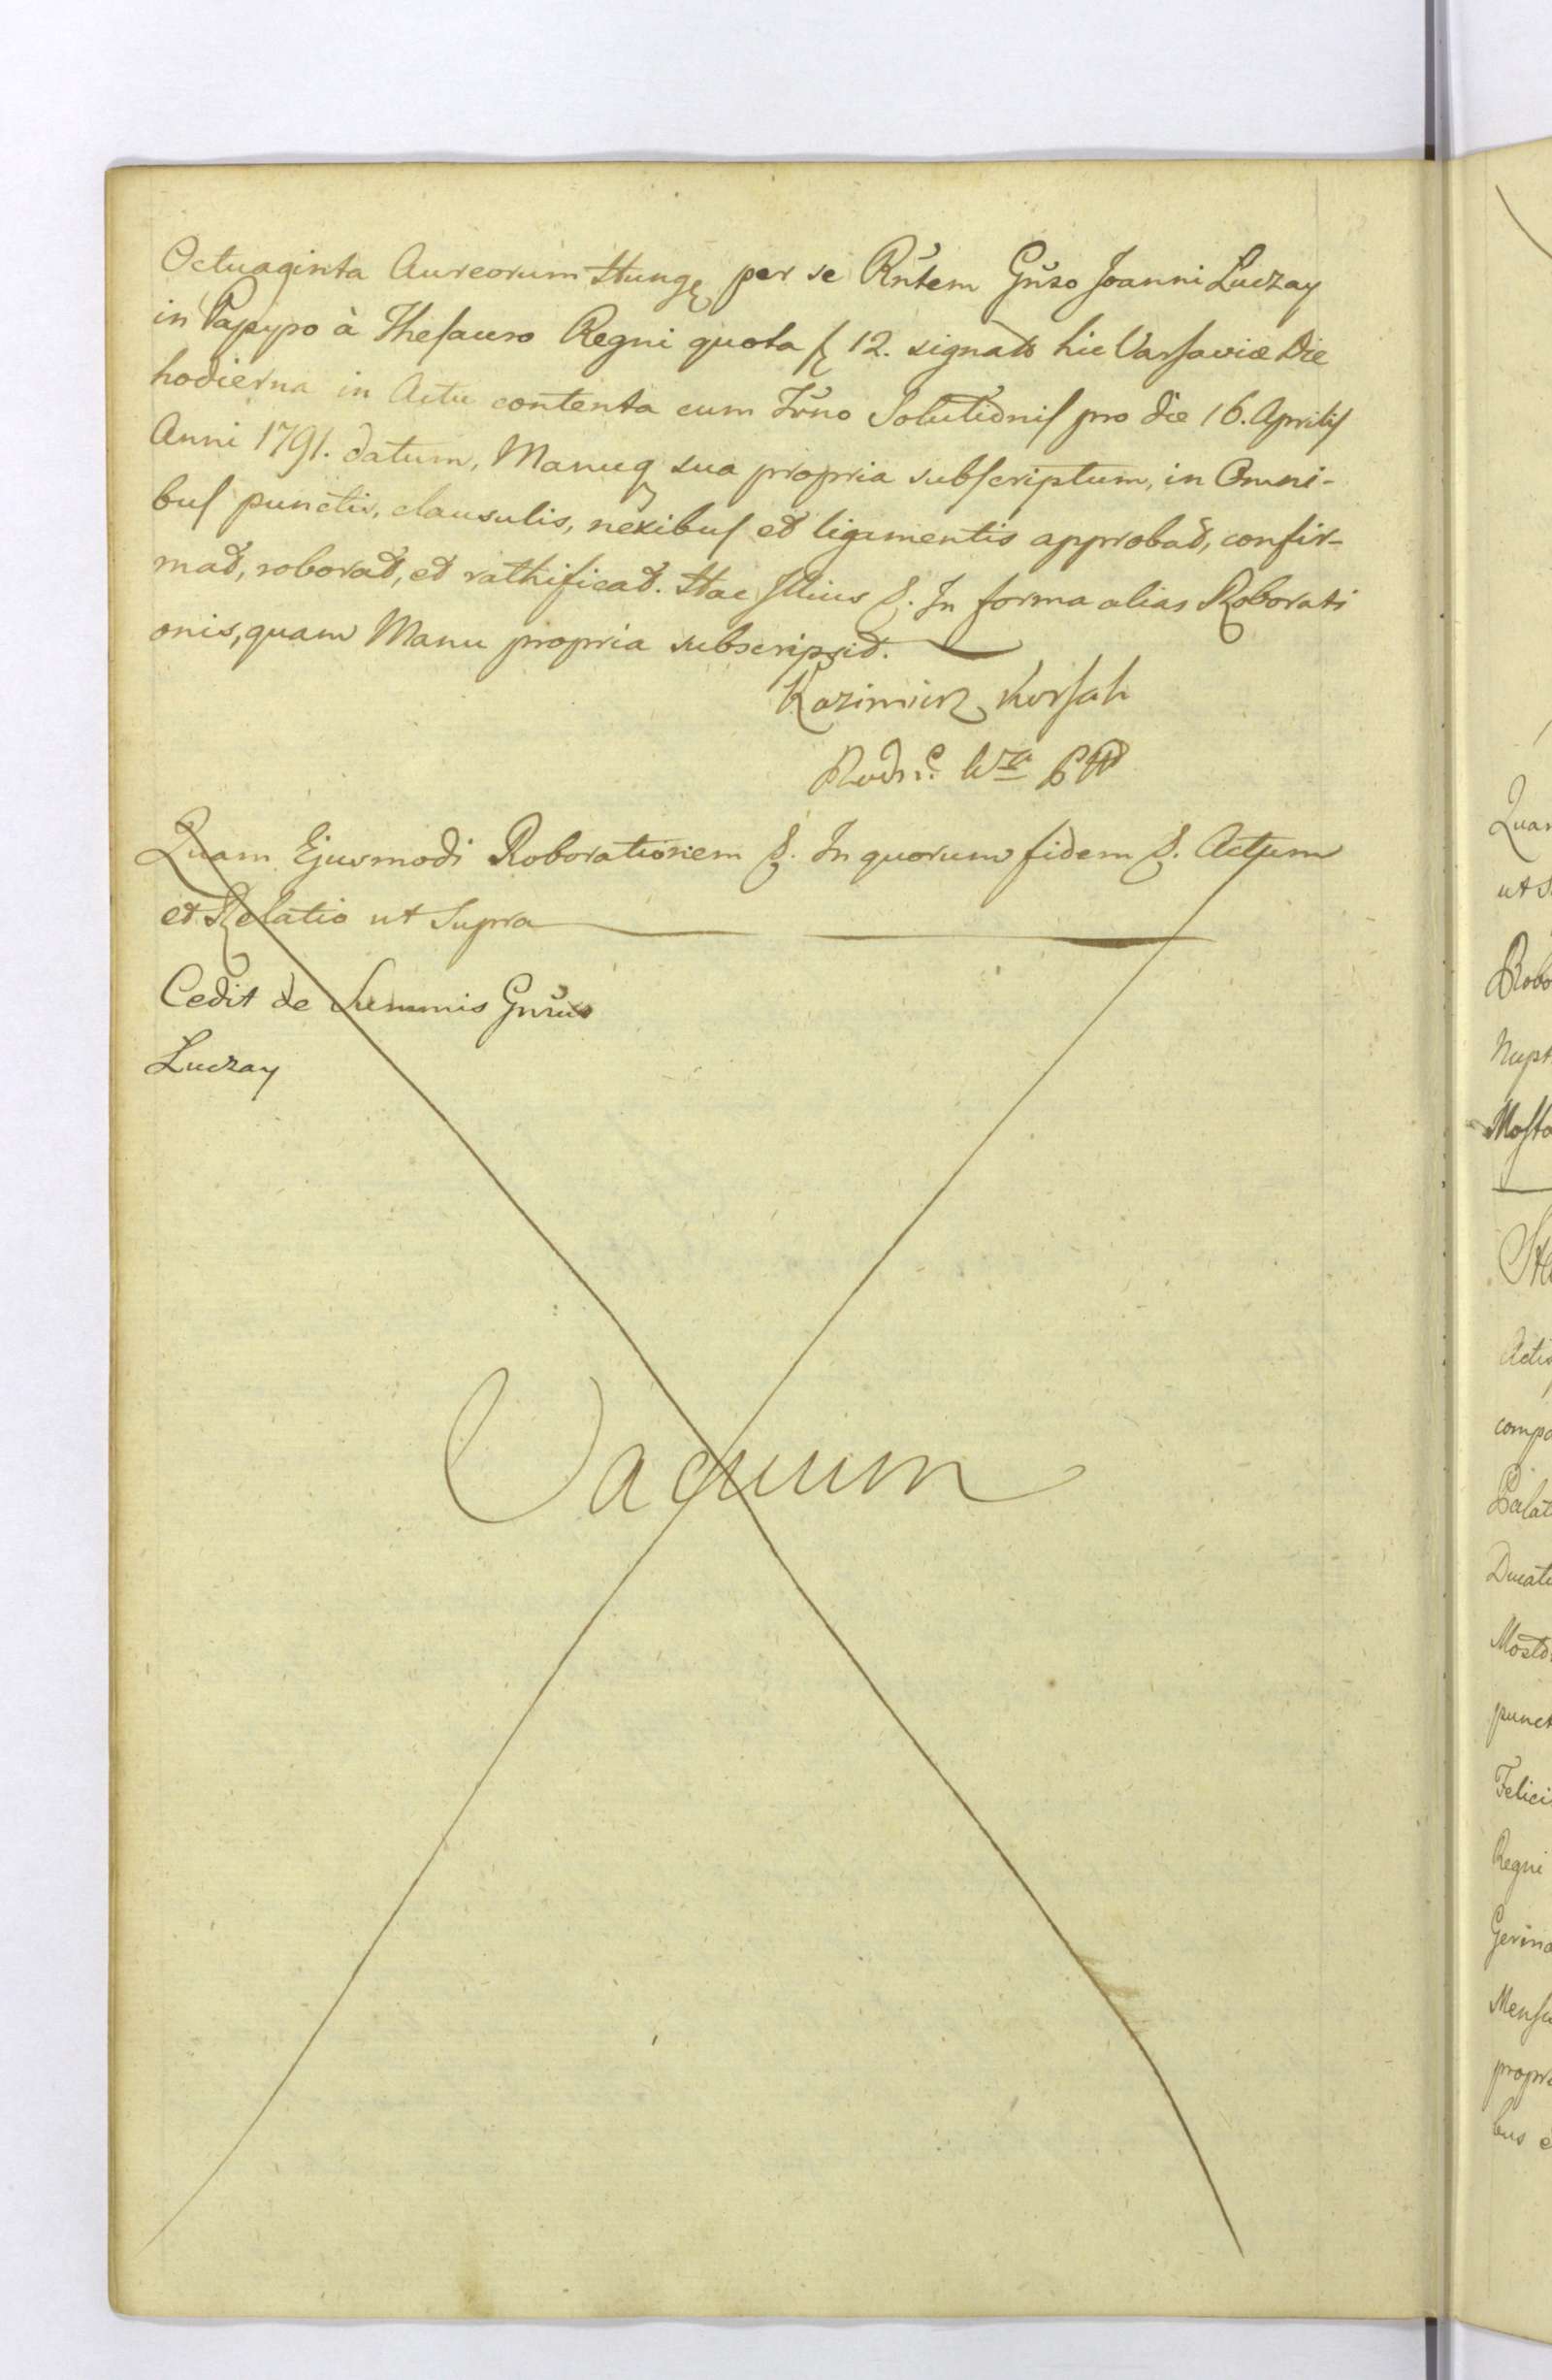 Octuaginta Aureorum Hung. per se Rñtem Gñso Joanni Luczay
in Papypo à Thesauro Regni quota f. 12. signato hic Varsaviæ Die
hodierna in Actu contenta cum Trño Solutionis pro die 16. Aprilis
Anni 1791. datum, Manuq sua propria subscriptum, in Omni-
bus punctis, clausulis, nexibus et ligamentis approbat, confir-
mat, roborat, et rathificat. Hac Illius &. In forma alias Roborati
onis, quam Manu propria subscripsit.
Kazimierz Korsak
Quam Ejusmodi Roborationem &. In quorum fidem &. Actum
et Relatio ut Supra
Cedit de Summis Gñsus
Luczay
Vacuum
Robo
Nupt
Mosto
Actis
compa
Palat
Ducatu
punct
Felici
Regni
propri
bus e